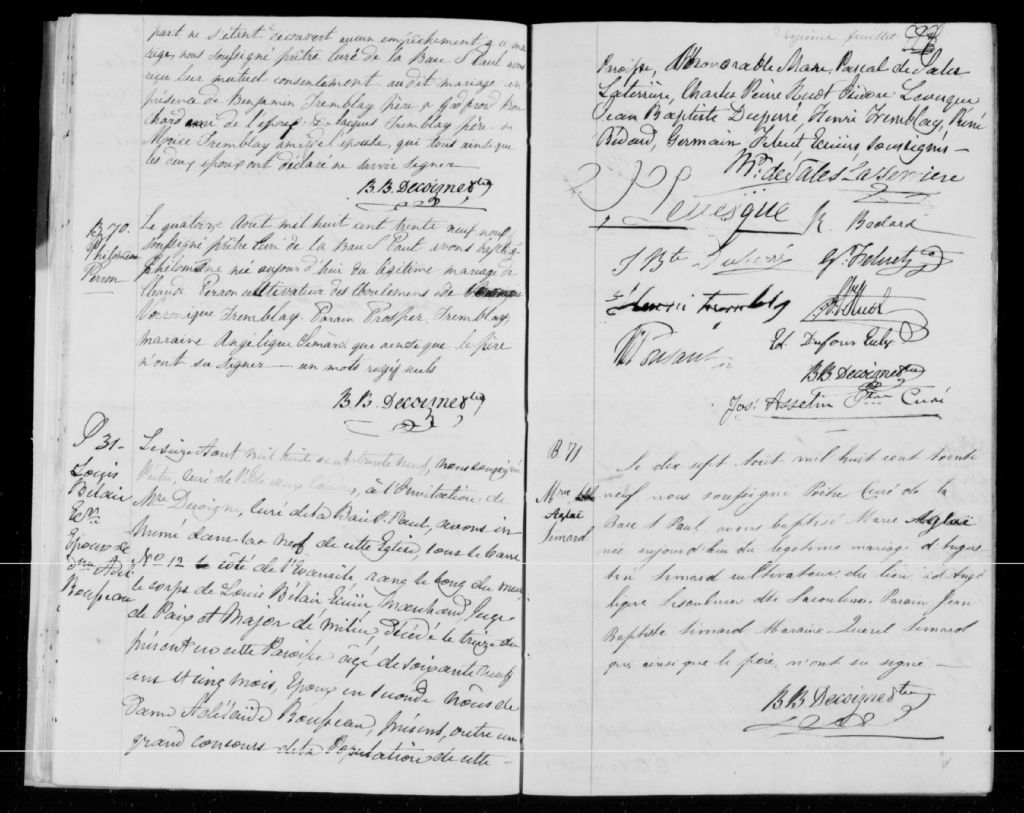 part ne s'étant découvert aucun empêchement a ce ma
riage, nous soussigné prêtre curé de la Baie S Paul avons
reçu leur mutuel consentement au dit mariage en
présence de Benjamin Tremblay père &
de l'époux & Jacques Tremblay père &
Moïse Tremblay ami de l'épouse, qui tous ainsi que
les deux époux ont déclaré ne savoir signer
B B Decoigne ptre
B 70.
Philomène
Perron
Le quatorze Août mil huit cent trente neuf nous
soussigné prêtre Curé de la Baie S Paul avons baptisé
Philomène née aujourd'hui du légitime mariage de
Perron cultivateur des Eboulemens & de
Veronique Tremblay. Parain Prosper Tremblay,
maraine Angélique Simard que ainsi que le père
n'ont su signer — un mots rayés nuls
B B Decoigne ptre
S 31-
Louis
Bélair
Ecr.
Epoux de
Dme Adél.
Rousseau
Le seize Aout mil huit cent trente neuf, nous soussigné
Prêtre, curé de l'Isle aux Coudres, à l'invitation de
Mre Decoigne, curé de la Baie St Paul, avons in
humé dans la nef de cette Eglise, sous le banc
No 12 côté de l'Evangile, rang le long du mur,
le corps de Louis Bélair Ecuier, Marchand, Juge
de Paix et Major de milice, décédé le treize du
présent en cette Paroisse âgé de soixante neuf
ans et cinq mois, Epoux en seconde nôces de
Dame Adélaïde Rousseau, présens, outre un
grand concours de la Population de cette
feuillet
Paroisse, l'Honorable Marc Pascal de Sales
Laterrière, Charles Pierre Huot Isidore Levesque
Jean Baptiste Duperré, Henri Tremblay, Réné
Bédard, Germain Tetut Ecuiers, soussignés —
MP. de Sales Laterriere
Levesque
R Bedard
J Bte Duperré
Henri Tremblay
Huot
Ed. Dufour
B B Decoigne ptre
Jos. Asselin Ptre Curé
B 71
Mrie
Aglaé
Simard
Le dix sept Août mil huit cent trente
neuf nous soussigné Prêtre Curé de la
Baie S Paul avons baptisé Marie Aglaé
née aujourd'hui du legitime mariage d'Augus
tin Simard cultivateur du lieu, & d'Angé
lique Parain Jean
Baptiste Simard, Maraine Simard
qui ainsi que le père n'ont su signé —
B B Decoigne ptre